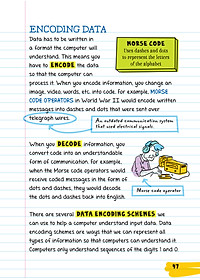 ENCODING DATA
Data has to be written in
a format the computer will
understand. This means you
have to ENCODE the data
so that the computer can
process it. When you encode information, you change an
image, video, words, etc. into code. for example, MORSE
CODE OPERATORS in World War II would encode written
messages into dashes and dots that were sent over
telegraph wires.
MORSE CODE
Uses dashes and dots
to represent the letters
of the alphabet
An outdated communication system
that used electrical signals.
When you DECODE information, you
convert code into an understandable
form of communication. for example,
when the Morse code operators would
receive coded messages in the form of
dots and dashes, they would decode
the dots and dashes back into English.
Morse code operator
There are several DATA ENCODING SCHEMES we
can use to help a computer understand input data. Data
encoding schemes are ways that we can represent all
types of information so that computers can understand it.
Computers only understand sequences of the digits 1 and 0.
97